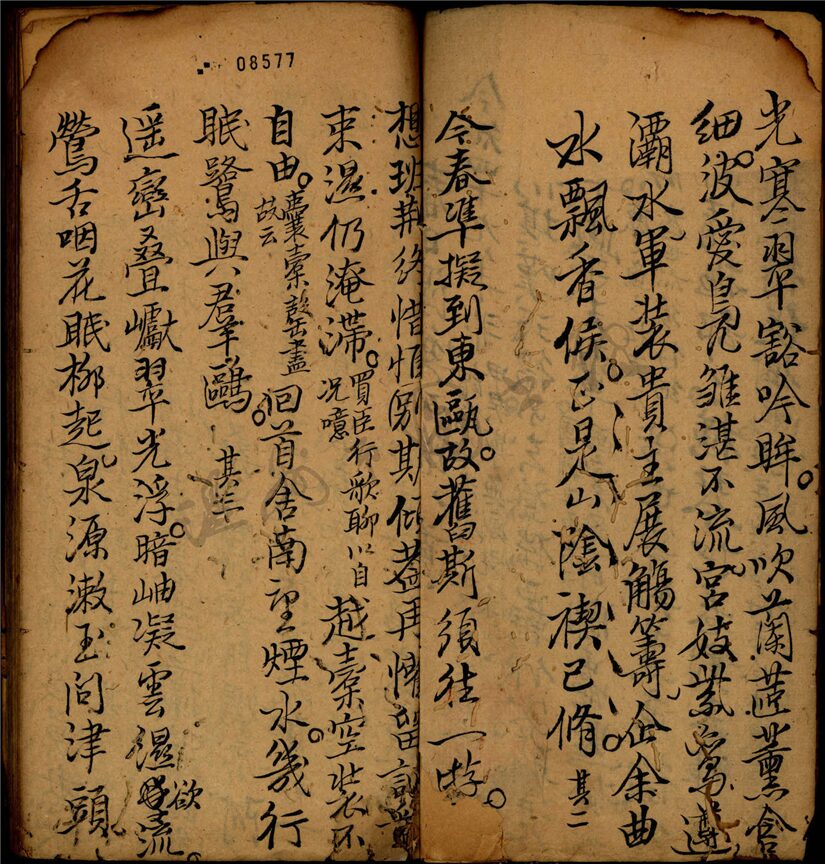 光寒翠豁吟眸。風吹蘭茝薰含
細波。愛鳧雛湛不流。宮妓紫鸞遵
灞水軍裝貴主展觴籌。企余曲
水飄香候。正是山陰禊已脩 其二
今春準擬到東甌。故舊斯須往一遊。
想班荆終惜恒別其傾蓋再懷留
束濕仍淹滯。買臣行歌聊以自況噫 越橐空裝不
自由。囊橐凝塵盡故云 回首舍南望煙水。幾行
眠鷺與羣鷗。 其三
遥巒叠巘翠光浮。暗岫凝雲濕欲流。
鶯舌咽花眠柳起泉源漱玉問津頭
08577